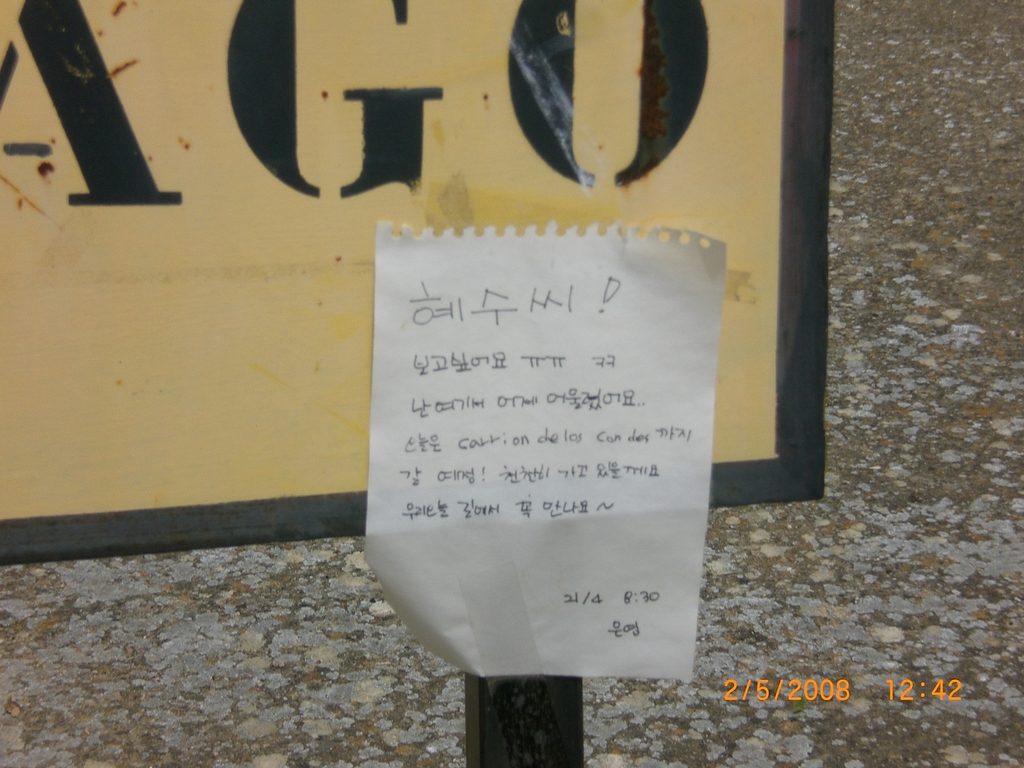 AGO
혜수씨!
보고싶어요 ㅠㅠ ㅋㅋ
난 여기서 어제 머물렀어요..
오늘은 carrion de los condes 까지
갈 예정! 천천히 가고 있을께요
우리 오늘 길에서 꼭 만나요~
21/4 8:30
은영
2/5/2008 12:42